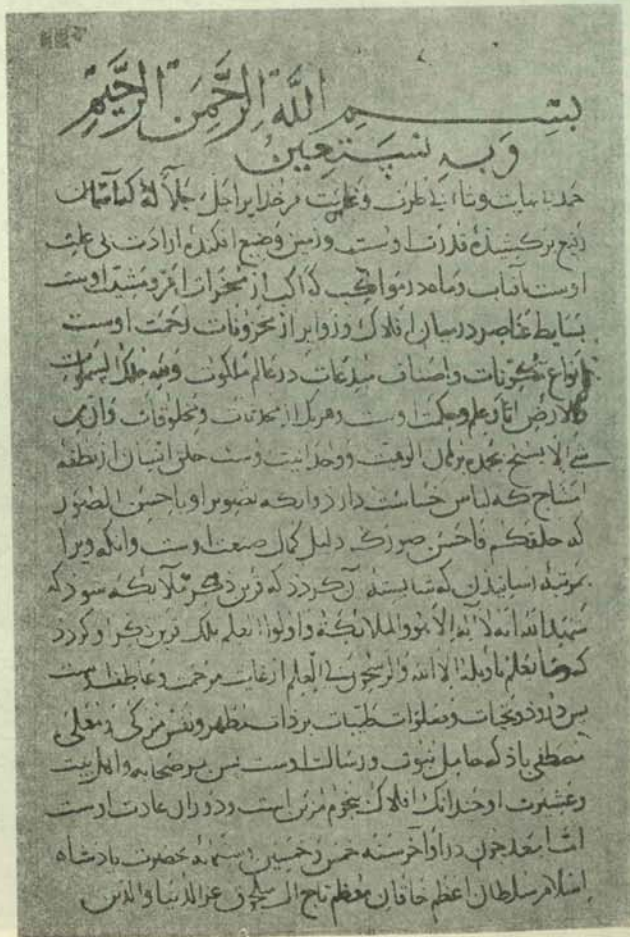 بسم الله الرحمن الرحیم
وبه نستعین
حمد بی نهایت وثناء بی طرف وغایت مر خدایرا جل جلاله که آسمان
رفیع برکشیدهٔ قدرت اوست وزمین وضیع افکندهٔ ارادت بی علت
اوست آفتاب وماه در مواکب کواکب از مسخرات امر ومشیت اوست
بسایط عناصر در میان افلاک ودوایر از مخزونات رحمت اوست
وانواع مکونات واصناف مبدعات در عالم ملکوت ولله ملک السموات
والارض آثار علم وحکمت اوست وهر یک از محدثات ومخلوقات وان من
شی الا یسبح بحمده بر کمال الوهیت ووحدانیت اوست خلق انسان از نطفه
امشاج که لباس خساست دارد وانکه تصویر او باحسن الصور
که خلقکم فاحسن صورکم دلیل کمال صنع اوست وانکه ویرا
بمرتبهٔ رسانیدن که شایستهٔ آن کردد که قرین ذکر ملایکه شود که
شهد الله انه لا اله الا هو والملایکة واولوا العلم بلک قرین ذکر او کردد
که وما یعلم تاویله الا الله والراسخون فی العلم از غایت مرحمت وعاطفت اوست
پس درود وتحیات وصلوات طیبات بر ذات مطهر ونفس مزکی ومعلی
مصطفی باذ که حامل نبوت ورسالت اوست پس بر صحابه واهل بیت
وعشیرت او چندانک افلاک بنجوم مزین است ودوران عادت اوست
اما بعد چون در اواخر سنه خمس وخمسین ستمایه حضرت بادشاه
اسلام سلطان اعظم خاقان معظم تاج آل سلجوق عز الدنیا والدین